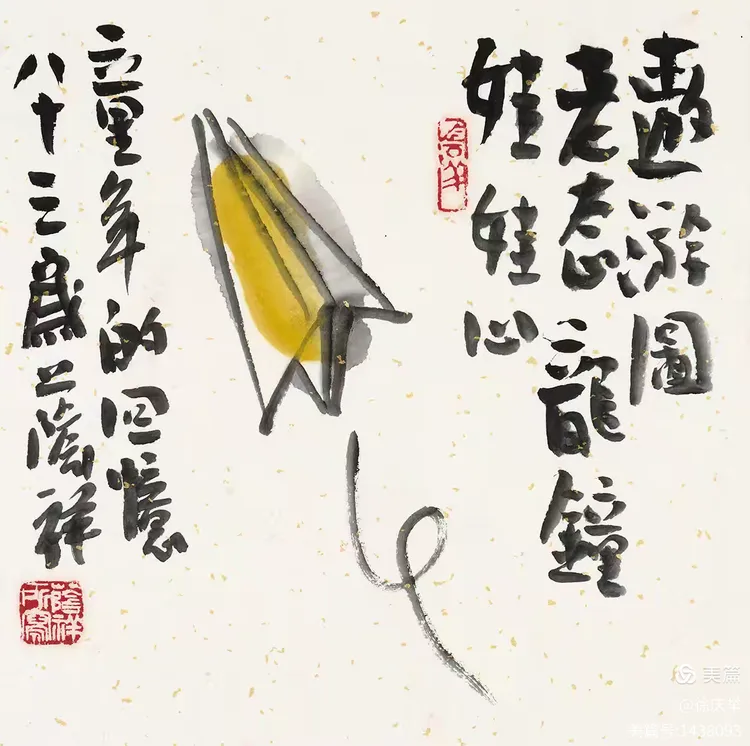 遨游圖
老态龍鐘
娃娃心
童年的回憶
八十三歲 蔭祥
蔭祥所寫
美篇
美篇号:1438093